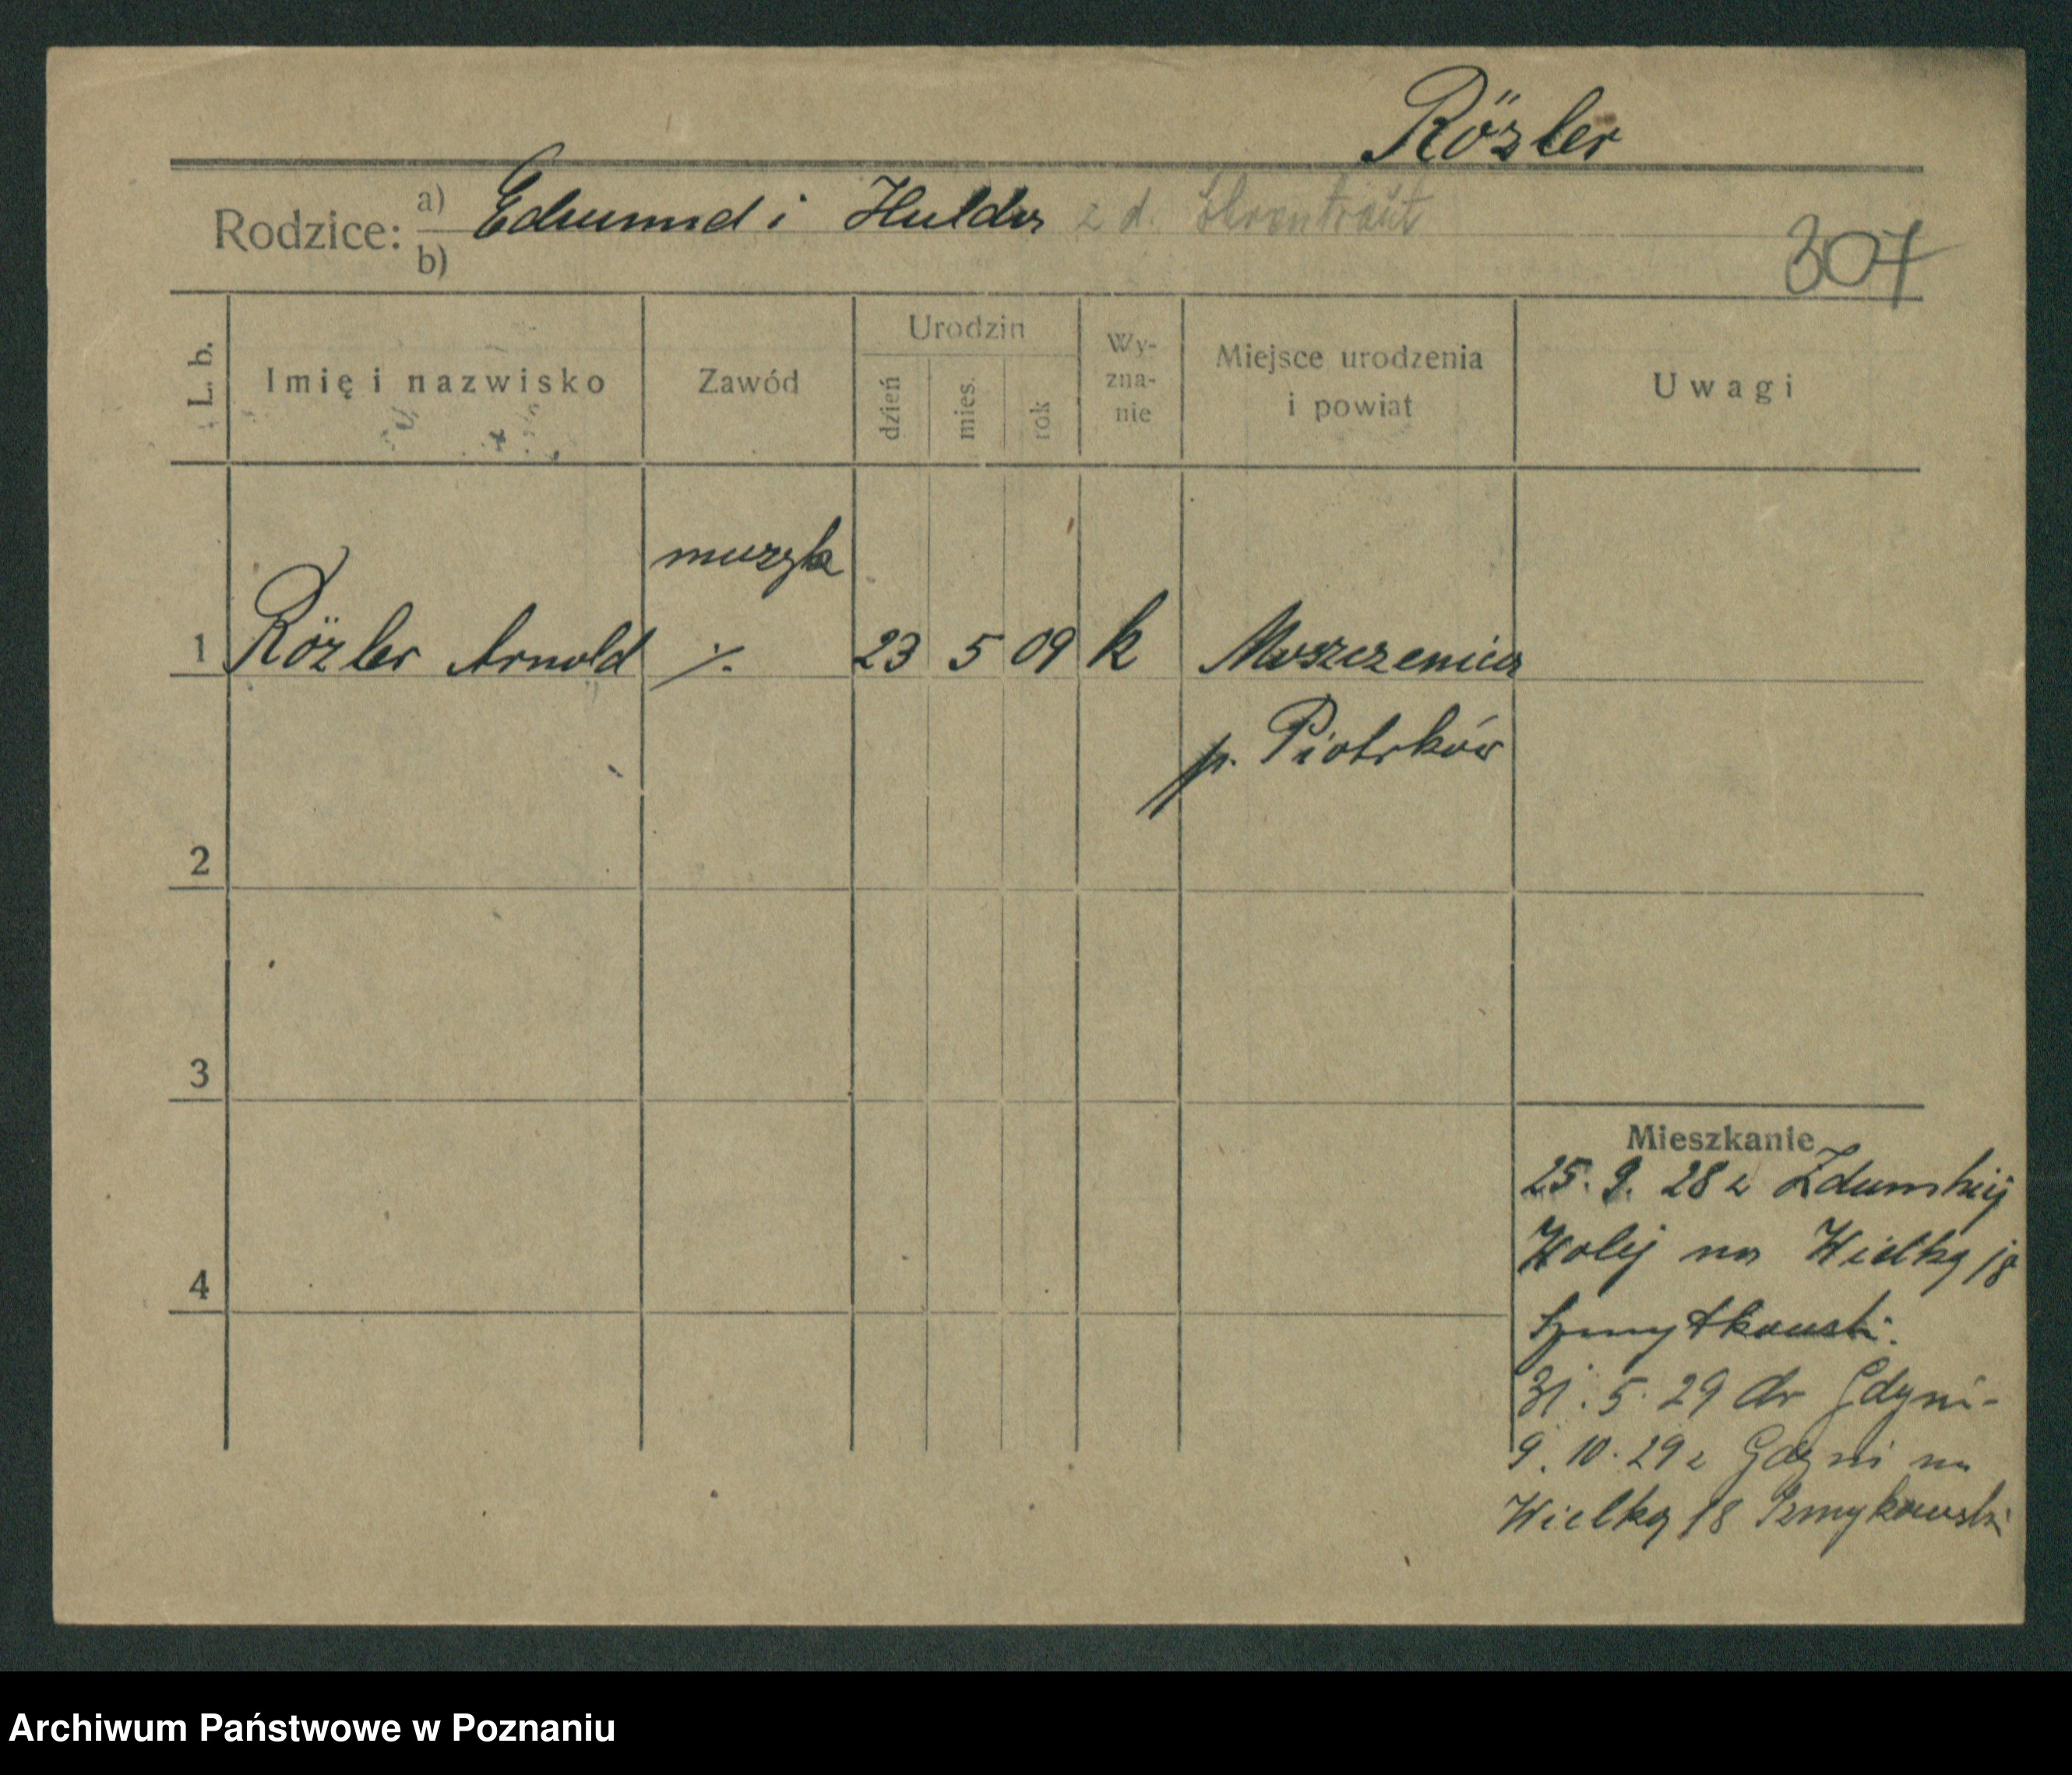 Rözler
Rodzice: a) Edmund i Hulda z d.
b)
307
L. b.
Imię i nazwisko
Zawód
Urodzin
dzień
mies.
rok
Wy-
zna-
nie
Miejsce urodzenia
i powiat
Uwagi
muzyk
1 Rözler Arnold ٪ 23 5 09 k Moszczenica
p. Piotrków
2
3
4
Mieszkanie
25. 9. 28 z Zduńskiej
Wolej na Wielką 18
Szmytkowski.
31. 5. 29 do Gdyni-
9. 10. 29 z Gdyni na
Wielką 18 Szmykowski
Archiwum Państwowe w Poznaniu